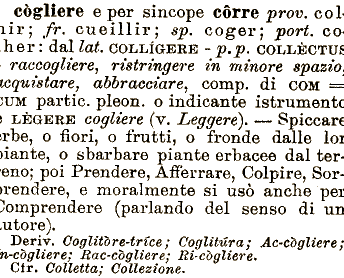 cògliere e per sincope còrre prov. col-
hir; fr. cueillir; sp. coger; port. co-
lher: dal lat. COLLÍGERE - p.p. COLLÈCTUS
- raccogliere, ristringere in minore spazio,
acquistare, abbracciare, comp. di COM =
CUM partic. pleon. o indicante istrumento
e LÈGERE cogliere (v. Leggere). — Spiccare
erbe, o fiori, o frutti, o fronde dalle lor
piante, o sbarbare piante erbacee dal ter-
reno; poi Prendere, Afferrare, Colpire, Sor-
prendere, e moralmente si usò anche per
Comprendere (parlando del senso di un
autore).
Deriv. Coglitòre-tríce; Coglitúra; Ac-cògliere;
In-cògliere; Rac-cògliere; Ri-cògliere.
Cfr. Colletta; Collezione.